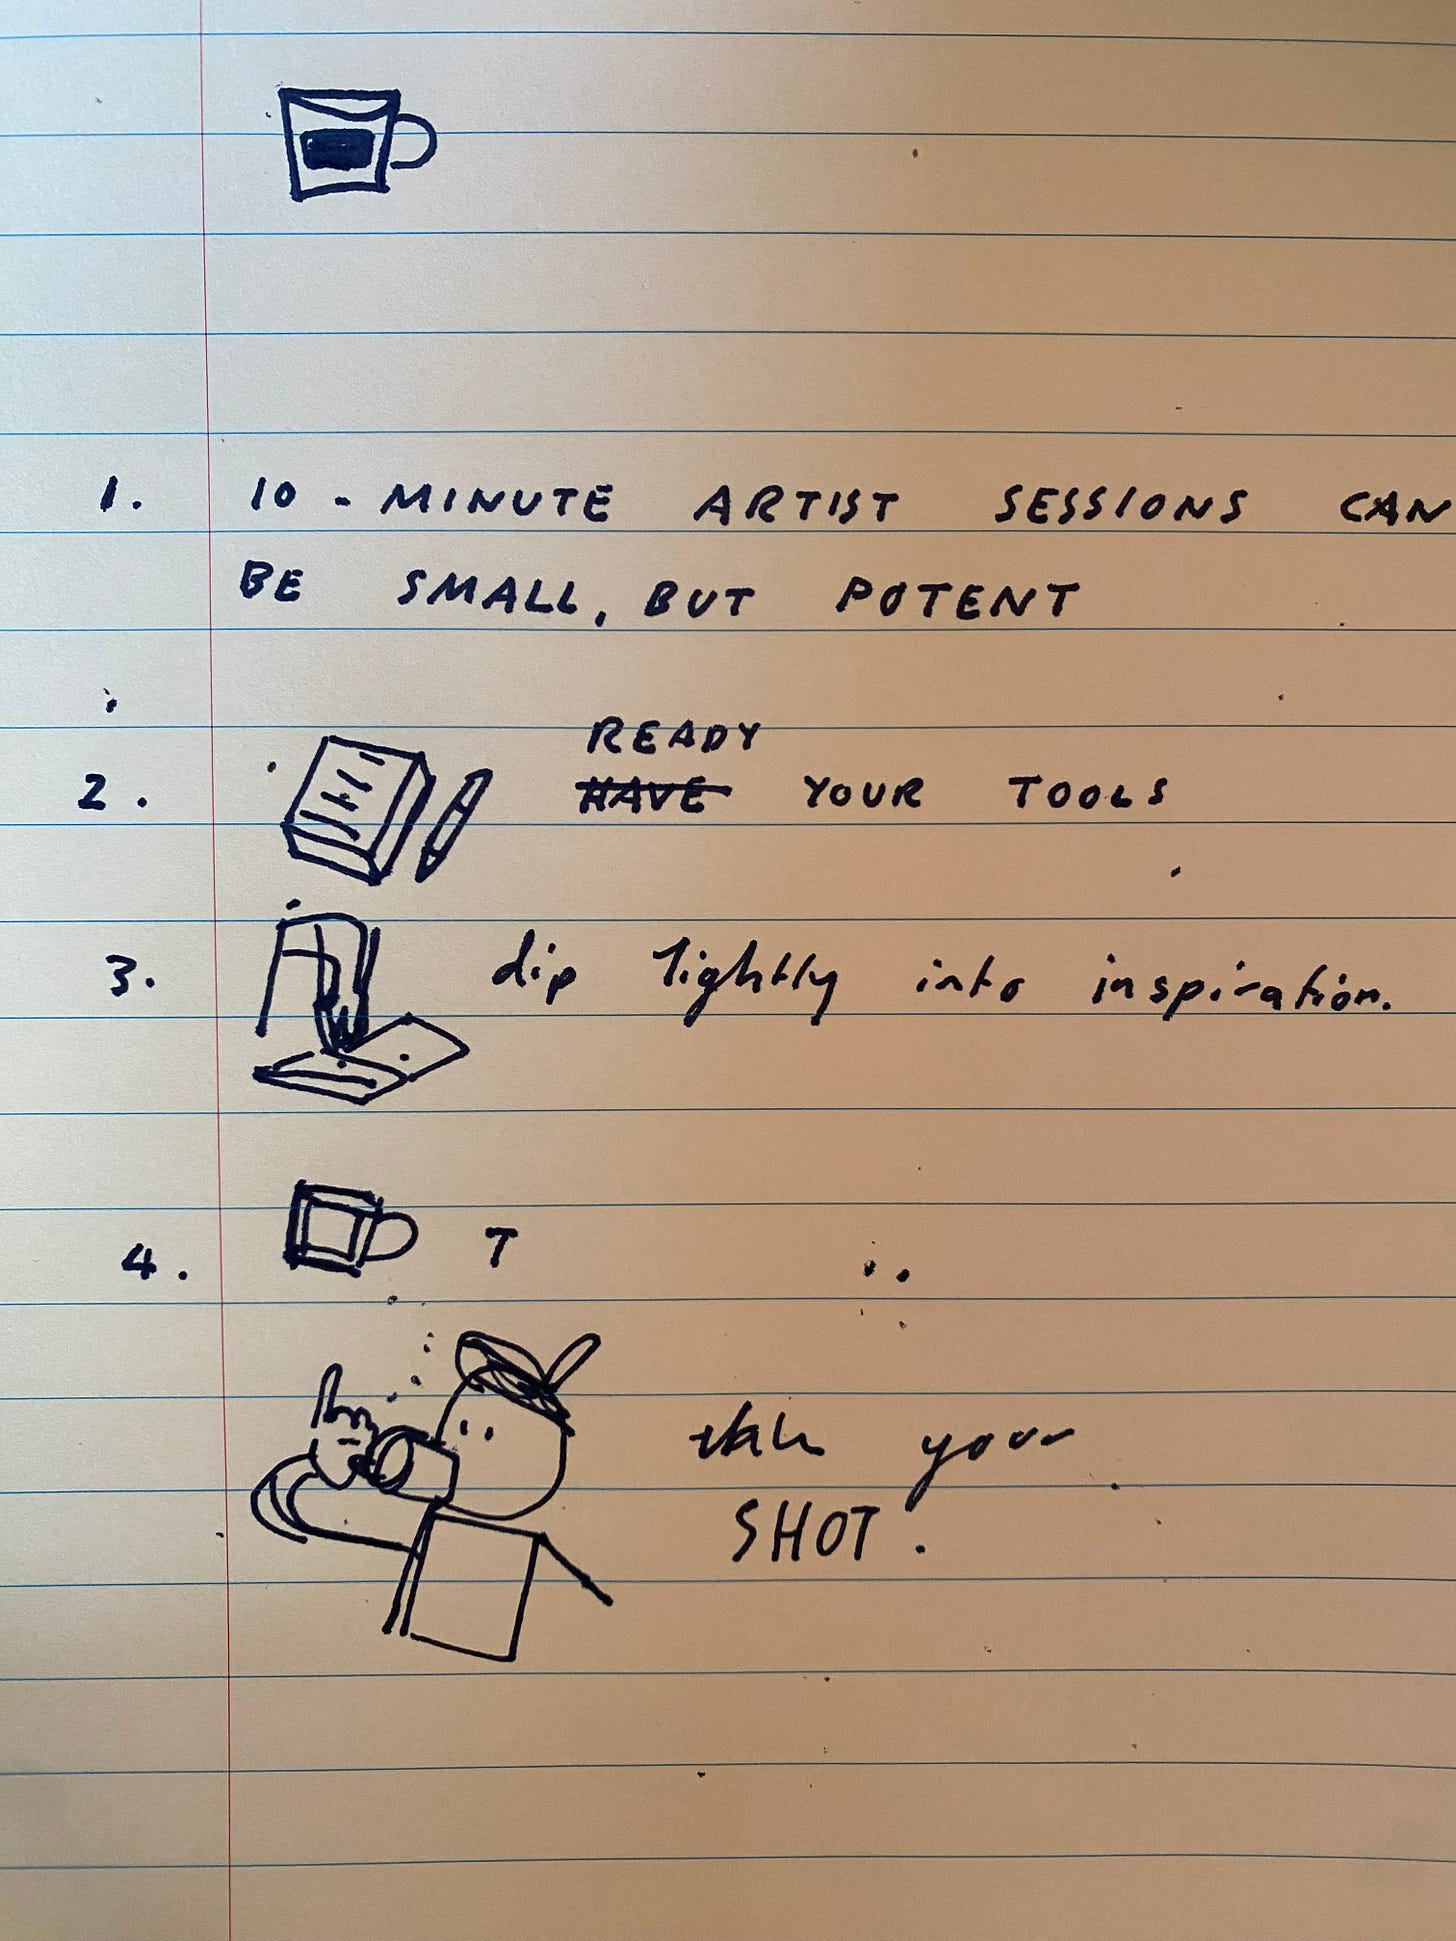 1. 10-MINUTE ARTIST SESSIONS CAN
BE SMALL, BUT POTENT
READY
2. HAVE YOUR TOOLS
3. dip lightly into inspiration.
4. T
take your
SHOT.